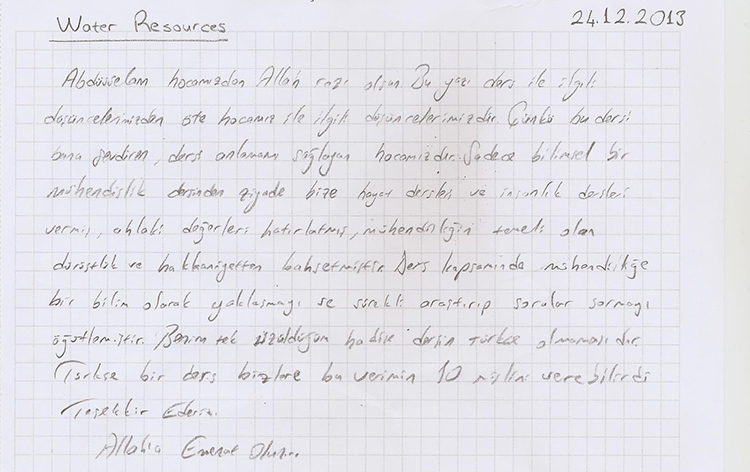 Water Resources 24.12.2013
Abdüsselam hocamızdan Allah razı olsun. Bu yazı ders ile ilgili
düşüncelerimizden öte hocamız ile ilgili düşüncelerimizdir. Çünkü bu dersi
bana sevdiren, dersi anlamamı sağlayan hocamızdır. Sadece bilimsel bir
mühendislik dersinden ziyade bize hayat dersleri ve insanlık dersleri
vermiş, ahlaki değerleri hatırlatmış, mühendisliğin temeli olan
dürüstlük ve hakkaniyetten bahsetmiştir. Ders kapsamında mühendisliğe
bir bilim olarak yaklaşmayı ve sürekli araştırıp sorular sormayı
öğütlemiştir. Benim tek üzüldüğüm hadise dersin Türkçe olmamasıdır.
Türkçe bir ders bizlere bu verimin 10 mislini verebilirdi
Teşekkür Ederim.
Allah'a Emanet Olun